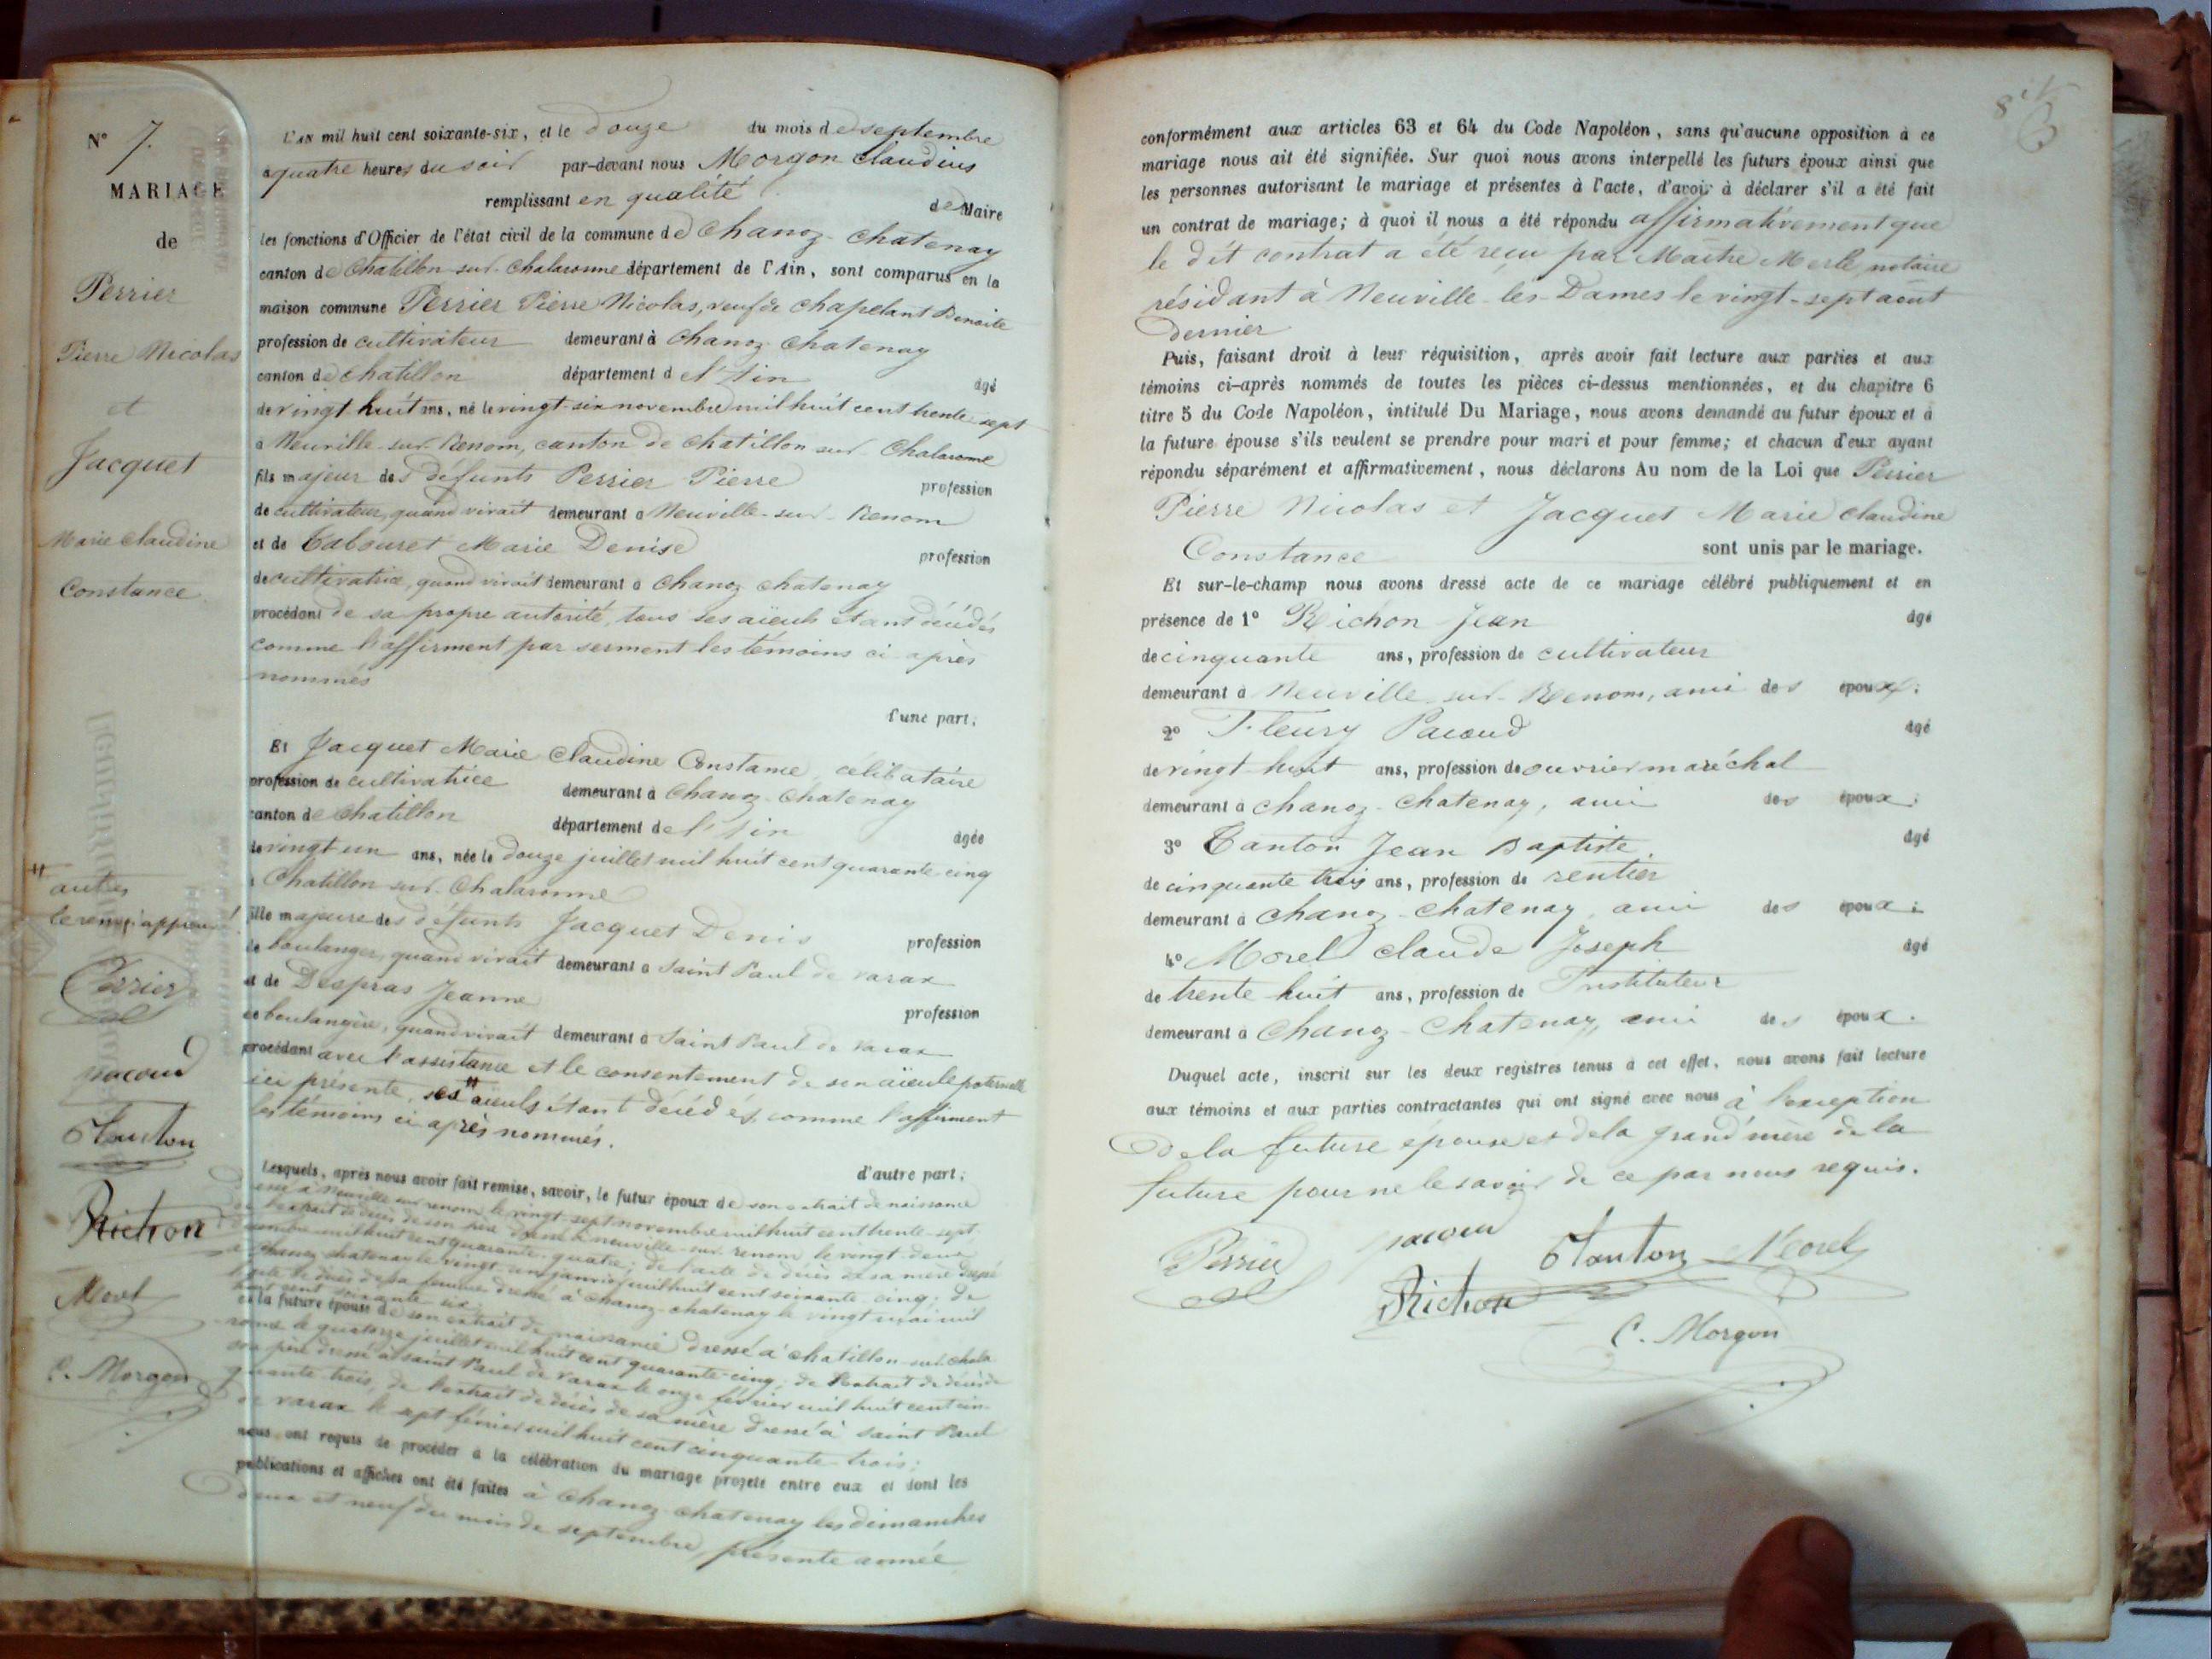 N° 7.
MARIAGE
de
Perrier
Pierre Nicolas
et
Jacquet
Marie Claudine
Constance
L'AN mil huit cent soixante-six, et le douze du mois de septembre
à quatre heures du soir par-devant nous Morgon Claudius
remplissant en qualité de Maire
les fonctions d'Officier de l'état civil de la commune de Chanoz-Chatenay
canton de Chatillon-sur-Chalaronne département de l'Ain, sont comparus en la
maison commune Perrier Pierre Nicolas, veuf de Chapelant Benoite
profession de cultivateur demeurant à Chanoz-Chatenay
canton de Chatillon département de l'Ain âgé
de vingt huit ans, né le vingt-six novembre mil huit cent trente-sept
à Neuville-sur-Renom, canton de Chatillon-sur-Chalaronne
fils majeur des défunts Perrier Pierre profession
de cultivateur, quand vivait demeurant à Neuville-sur-Renom
et de Tabouret Marie Denise profession
de cultivatrice, quand vivait demeurant à Chanoz-Chatenay
procédant de sa propre autorité, tous ses aïeuls étant décédés
comme l'affirment par serment les témoins ci-après
nommés
d'une part;
Et Jacquet Marie Claudine Constance, célibataire
profession de cultivatrice demeurant à Chanoz-Chatenay
canton de Chatillon département de l'Ain âgée
de vingt-un ans, née le douze juillet mil huit cent quarante-cinq
à Chatillon-sur-Chalaronne
fille majeure des défunts Jacquet Denis profession
de boulanger, quand vivait demeurant à Saint Paul de Varax
et de Despras Jeanne profession
de boulangère, quand vivait demeurant à Saint Paul de Varax
procédant avec l'assistance et le consentement de son aïeule paternelle
ici présente, ses # aïeuls étant décédés, comme l'affirment
les témoins ci après nommés.
d'autre part;
Lesquels, après nous avoir fait remise, savoir, le futur époux de son extrait de naissance
dressé à Neuville sur renom le vingt-sept novembre mil huit cent trente-sept,
de l'extrait de décès de son père dressé à neuville-sur-renom le vingt-deux
mil huit cent quarante-quatre; de l'acte de décès de sa mère dressé
à Chanoz chatenay le vingt un janvier mil huit cent soixante-cinq; de
l'acte de décès de sa femme dressé à Chanoz-chatenay le vingt mai mil
huit cent soixante-six.
et la future épouse de son extrait de naissance dressé à Chatillon-sur-Chala
ronne le quatorze juillet mil huit cent quarante-cinq; de l'extrait de décès de
son père dressé à Saint Paul de Varax le onze février mil huit cent cin
quante trois, de l'extrait de décès de sa mère dressé à Saint Paul
de varax le sept février mil huit cent cinquante-trois;
nous ont requis de procéder à la célébration du mariage projeté entre eux et dont les
publications et affiches ont été faites à Chanoz-chatenay les dimanches
deux et neuf du mois de septembre, présente année
# autres
le renvoi approuvé
Perrier
pacoud
Tanton
Richon
Morel
C. Morgon
conformément aux articles 63 et 64 du Code Napoléon, sans qu'aucune opposition à ce
mariage nous ait été signifiée. Sur quoi nous avons interpellé les futurs époux ainsi que
les personnes autorisant le mariage et présentes à l'acte, d'avoir à déclarer s'il a été fait
un contrat de mariage; à quoi il nous a été répondu affirmativement que
le dit contrat a été reçu par Maître Merle, notaire
résidant à Neuville-les-Dames le vingt-sept août
dernier
Puis, faisant droit à leur réquisition, après avoir fait lecture aux parties et aux
témoins ci-après nommés de toutes les pièces ci-dessus mentionnées, et du chapitre 6
titre 5 du Code Napoléon, intitulé Du Mariage, nous avons demandé au futur époux et à
la future épouse s'ils veulent se prendre pour mari et pour femme; et chacun d'eux ayant
répondu séparément et affirmativement, nous déclarons Au nom de la Loi que Perrier
Pierre Nicolas et Jacquet Marie Claudine
Constance sont unis par le mariage.
Et sur-le-champ nous avons dressé acte de ce mariage célébré publiquement et en
présence de 1° Richon Jean âgé
de cinquante ans, profession de cultivateur
demeurant à Neuville-sur-Renom, ami des époux;
2° Fleury Pacoud âgé
de vingt-huit ans, profession de ouvrier maréchal
demeurant à Chanoz-Chatenay, ami des époux;
3° Tanton Jean Baptiste âgé
de cinquante trois ans, profession de rentier
demeurant à Chanoz-Chatenay, ami des époux;
4° Morel Claude Joseph âgé
de trente huit ans, profession de Instituteur
demeurant à Chanoz-Chatenay, ami des époux.
Duquel acte, inscrit sur les deux registres tenus à cet effet, nous avons fait lecture
aux témoins et aux parties contractantes qui ont signé avec nous à l'exception
de la future épouse et de la grand'mère de la
future pour ne le savoir de ce par nous requis.
Perrier pacoud Tanton Morel
Richon
C. Morgon